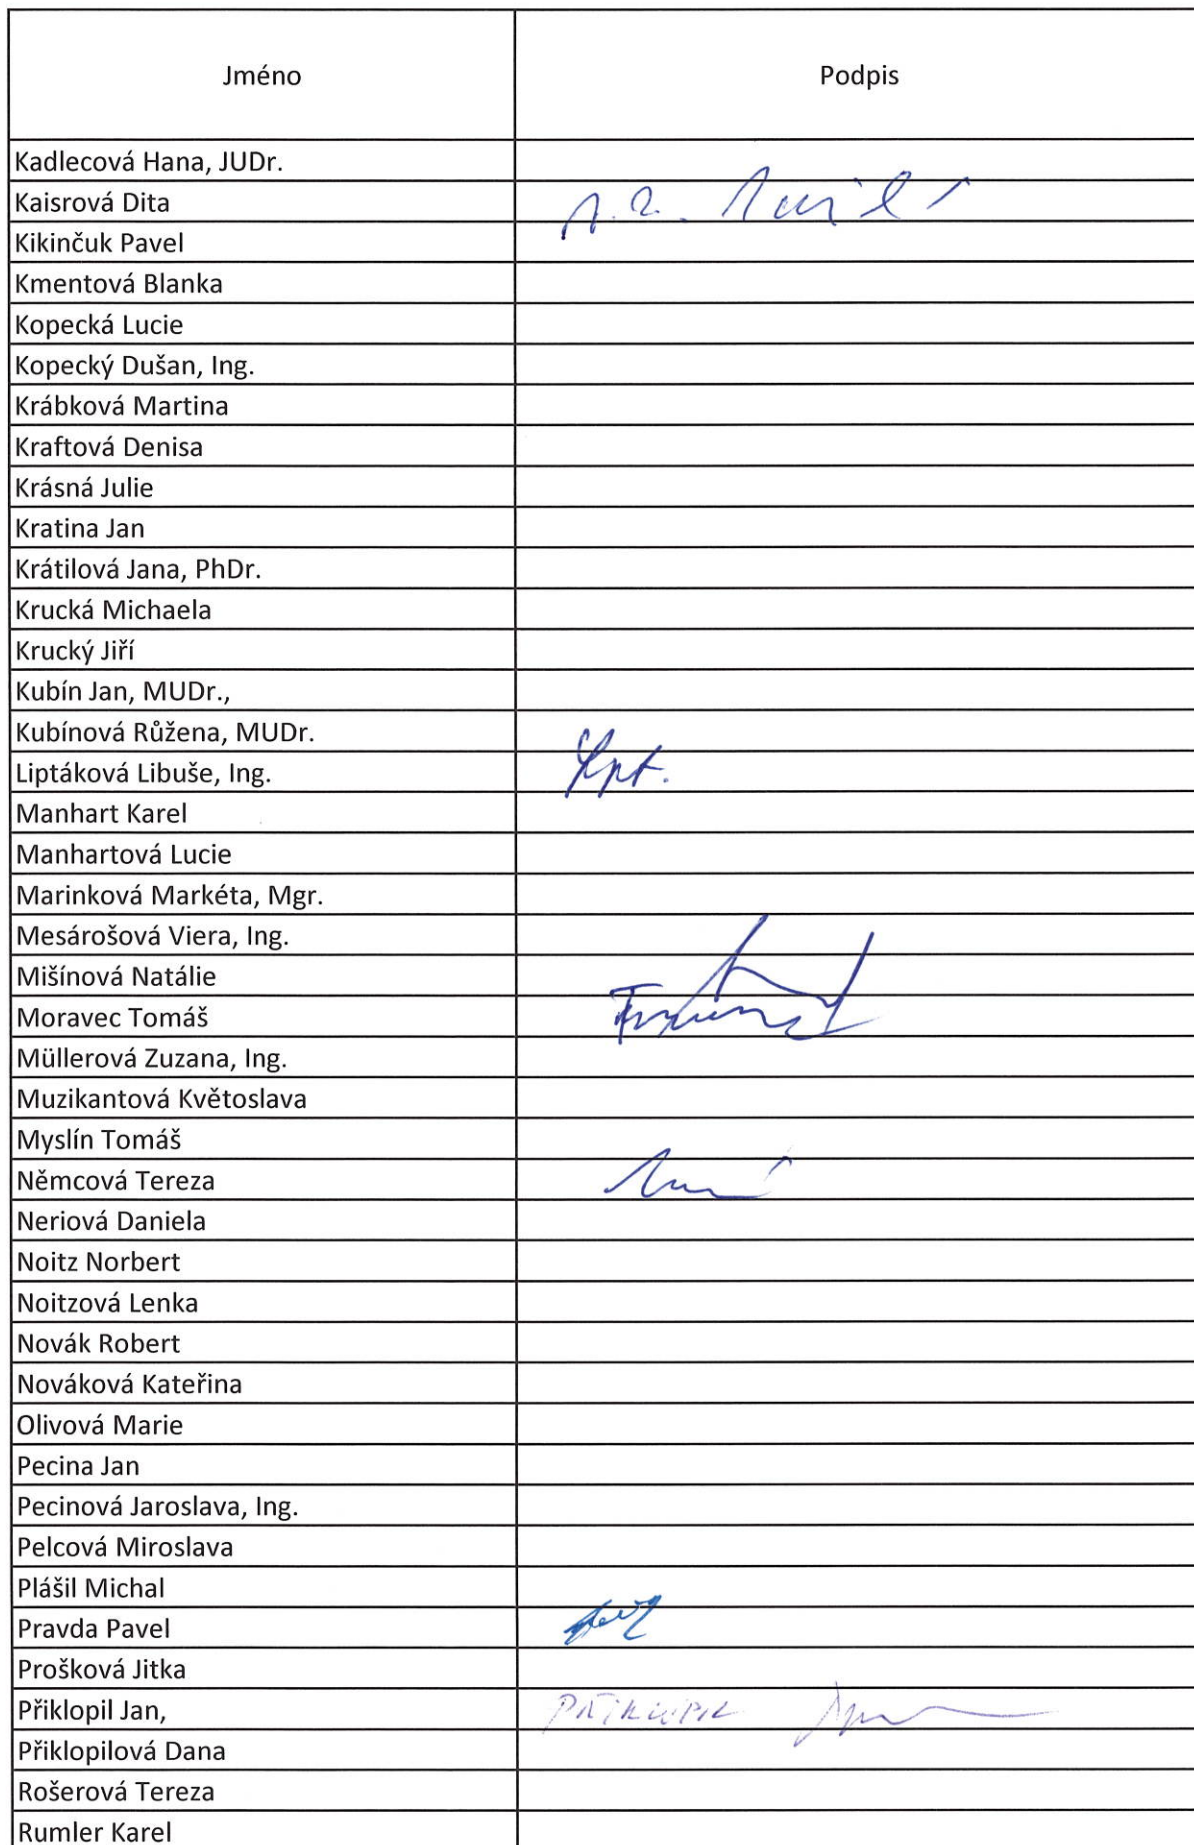 Jméno Podpis
Kadlecová Hana, JUDr.
Kaisrová Dita
Kikinčuk Pavel
Kmentová Blanka
Kopecká Lucie
Kopecký Dušan, Ing.
Krábková Martina
Kraftová Denisa
Krásná Julie
Kratina Jan
Krátilová Jana, PhDr.
Krucká Michaela
Krucký Jiří
Kubín Jan, MUDr.,
Kubínová Růžena, MUDr.
Liptáková Libuše, Ing.
Manhart Karel
Manhartová Lucie
Marinková Markéta, Mgr.
Mesárošová Viera, Ing.
Mišínová Natálie
Moravec Tomáš
Müllerová Zuzana, Ing.
Muzikantová Květoslava
Myslín Tomáš
Němcová Tereza
Neriová Daniela
Noitz Norbert
Noitzová Lenka
Novák Robert
Nováková Kateřina
Olivová Marie
Pecina Jan
Pecinová Jaroslava, Ing.
Pelcová Miroslava
Plášil Michal
Pravda Pavel
Prošková Jitka
Přiklopil Jan, PŘIKLOPIL
Přiklopilová Dana
Rošerová Tereza
Rumler Karel